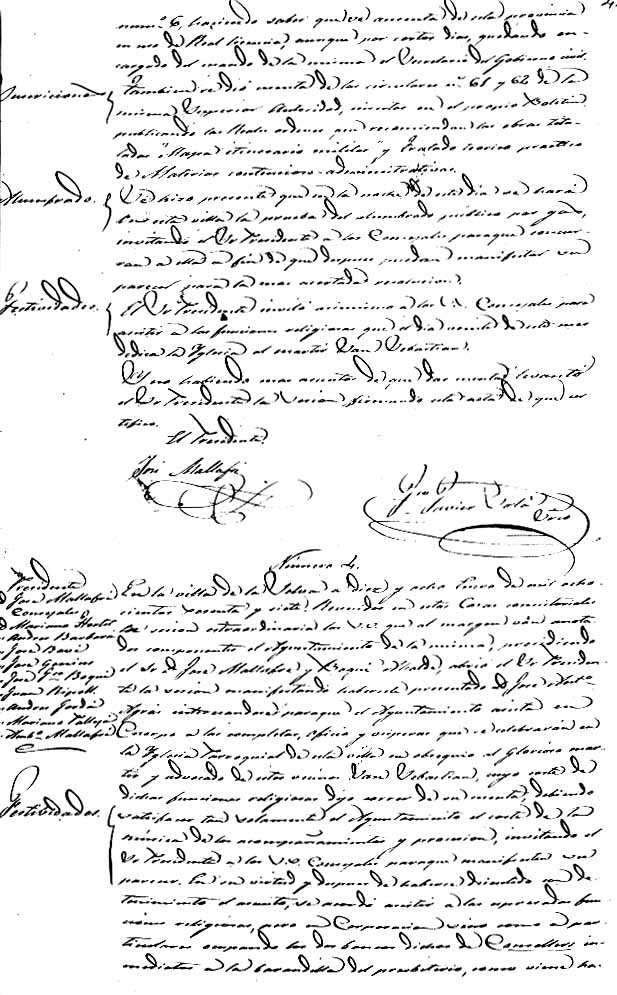 num.º 6, haciendo saber que se ausenta de esta provincia
en uso de Real licencia, aunque por cortos dias, quedando en-
cargado del mando de la misma el Secretario del Gobierno civil.
Suscriciones
Tambien se dió cuenta de las circulares nº 61 y 62 de la
misma Superior Autoridad, insertas en el propio Boletin
publicando las Reales ordenes que recomiendan las obras titu-
ladas "Mapa itinerario militar" y Tratado teorico practico
de Materias contencioso-administrativas.
Alumbrado.
Se hizo presente que en la noche de este dia se hará
en esta villa la prueba del alumbrado público por gas,
invitando el Sr Presidente a los Concejales para que concur-
ran a ella a fin de que despues puedan manifestar su
parecer para la mas acertada resolucion.
Festividades.
El Sr Presidente invitó asimismo a los S.S. Concejales para
asistir a las funciones religiosas que el dia veinte de este mes
dedica la Iglesia al martir San Sebastian.
Y no habiendo mas asuntos de que dar cuenta, levantó
el Sr Presidente la sesion, firmando esta acta de que cer-
tifico.
El Presidente
José Mallafré
Javier
Srio
Número 4.
Presidente
José Mallafré
Concejales
Mariano
Andres Barberá
José Bové
José
José Fco Boqué
Juan Ripoll
Andres Godás
Mariano Vallés
Antº Mallafré
En la villa de la Selva a diez y ocho Enero de mil ocho-
cientos sesenta y siete: Reunidos en estas Casas consistoriales
en sesion extraordinaria los S.S. que al margen van anota-
dos componentes el Ayuntamiento de la misma, presidiendo
el Sr D. José Mallafré y Boqué Alcalde, abrió el Sr Presiden-
te la sesion manifestando haberse presentado D. José Antº
para que el Ayuntamiento asista en
Cuerpo a las completas, oficio y visperas que se celebrarán en
la Iglesia Parroquial de esta villa en obsequio al Glorioso mar-
tir y abogado de estos vecinos San Sebastian, cuyo coste de
Festividades.
dichas funciones religiosas dijo correr de su cuenta, debiendo
satisfacer tan solamente el Ayuntamiento el coste de la
música de los acompañamientos y procesion, invitando el
Sr Presidente a los S.S. Concejales para que manifiesten su
parecer. En su virtud y despues de haberse discutido con de-
tenimiento el asunto, se acordó asistir a las expresadas fun-
ciones religiosas, pero en Corporacion sino como a par-
ticulares ocupando los dos bancos dichos de Consellers in-
mediatos a la barandilla del presbiterio, como viene ha-